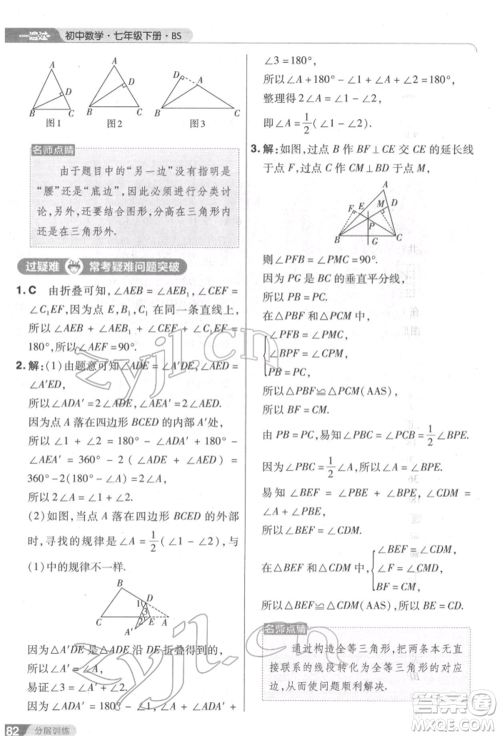 一遍过 初中数学·七年级下册·BS
A
D
B C
图1
A
D
B C
图2
D
A
B C
图3
名师点睛
由于题目中的“另一边”没有指明是
“腰”还是“底边”,因此必须进行分类讨
论,另外,还要结合图形,分高在三角形内
还是在三角形外.
过疑难 常考疑难问题突破
1.C 由折叠可知,∠AEB=∠A′EB,∠CEF=
∠C′EF,因为点E,B,C′在同一条直线上,
所以∠AEB+∠A′EB+∠CEF+∠C′EF=
180°,所以∠AEF=90°.
2.解:(1)由题意可知∠ADE=∠A′DE,
所以∠ADA′=2∠ADE,∠AEA′=2∠AED.
因为点A落在四边形BCED的内部,
所以∠1+∠2=180°-∠ADA′+180°-
∠AEA′=360°-2(∠ADE+∠AED)=
360°-2(180°-∠A)=2∠A,
所以∠A=1/2(∠1+∠2).
(2)如图,当点A落在四边形BCED的外部
时,寻找的规律是∠A=1/2(∠1-∠2),与
(1)中的规律不一样.
因为△A′DE是△ADE沿DE折叠得到的,
所以∠A′=∠A.
易证∠2+∠A′=∠3,∠A+
因为∠ADA′=180°-∠1,
∠3=180°,
所以∠A+∠A′+∠2+180°-∠1=180°,
所以∠A+∠A=∠1-∠2,
即∠A=1/2(∠1-∠2).
9.解:如图,过点B作BF⊥CE交CE的延长线
于点F,过点C作CM⊥BD于点M,
A
P
B G C
则∠PFB=∠PMC=90°.
因为PG是BC的垂直平分线,
所以PB=PC.
在△PFB和△PMC中,
∠PFB=∠PMC,
∠BPF=∠CPM,
PB=PC,
所以△PFB≌△PMC(AAS),
所以BF=CM.
由PB=PC,易知∠PBC=∠PCB=1/2∠BPF.
因为∠PBC=1/2∠A,所以∠A=∠BPE.
易知∠BEF=∠A+∠ABD,∠CDM=
∠A+∠ABD,
所以∠BEF=∠CDM.
在△BEF和△CDM中,
∠BEF=∠CDM,
∠BFE=∠CMD,
BF=CM,
所以△BEF≌△CDM(AAS),
所以BE=CD.
名师点睛
通过构造全等三角形,把两条本无直
接联系的线段转化为全等三角形的对应
边,从而使问题顺利解决.
82 分层训练
zyjl.cn